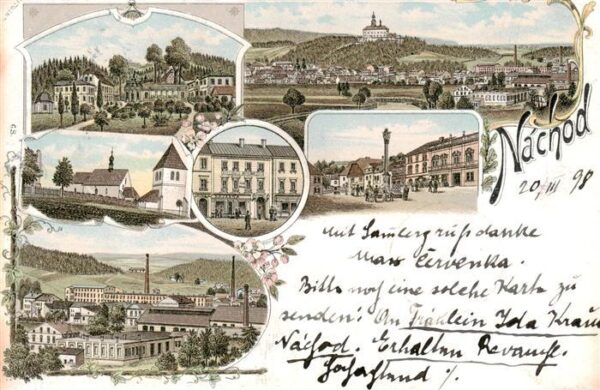 Náchod
20/III 98
Mit Sammlergruß danke
Max Červenka.
Bitte noch eine solche Karte zu
senden: An Fräulein Ida Kraus
Náchod. Erhalten Revanch.
Hochachtend